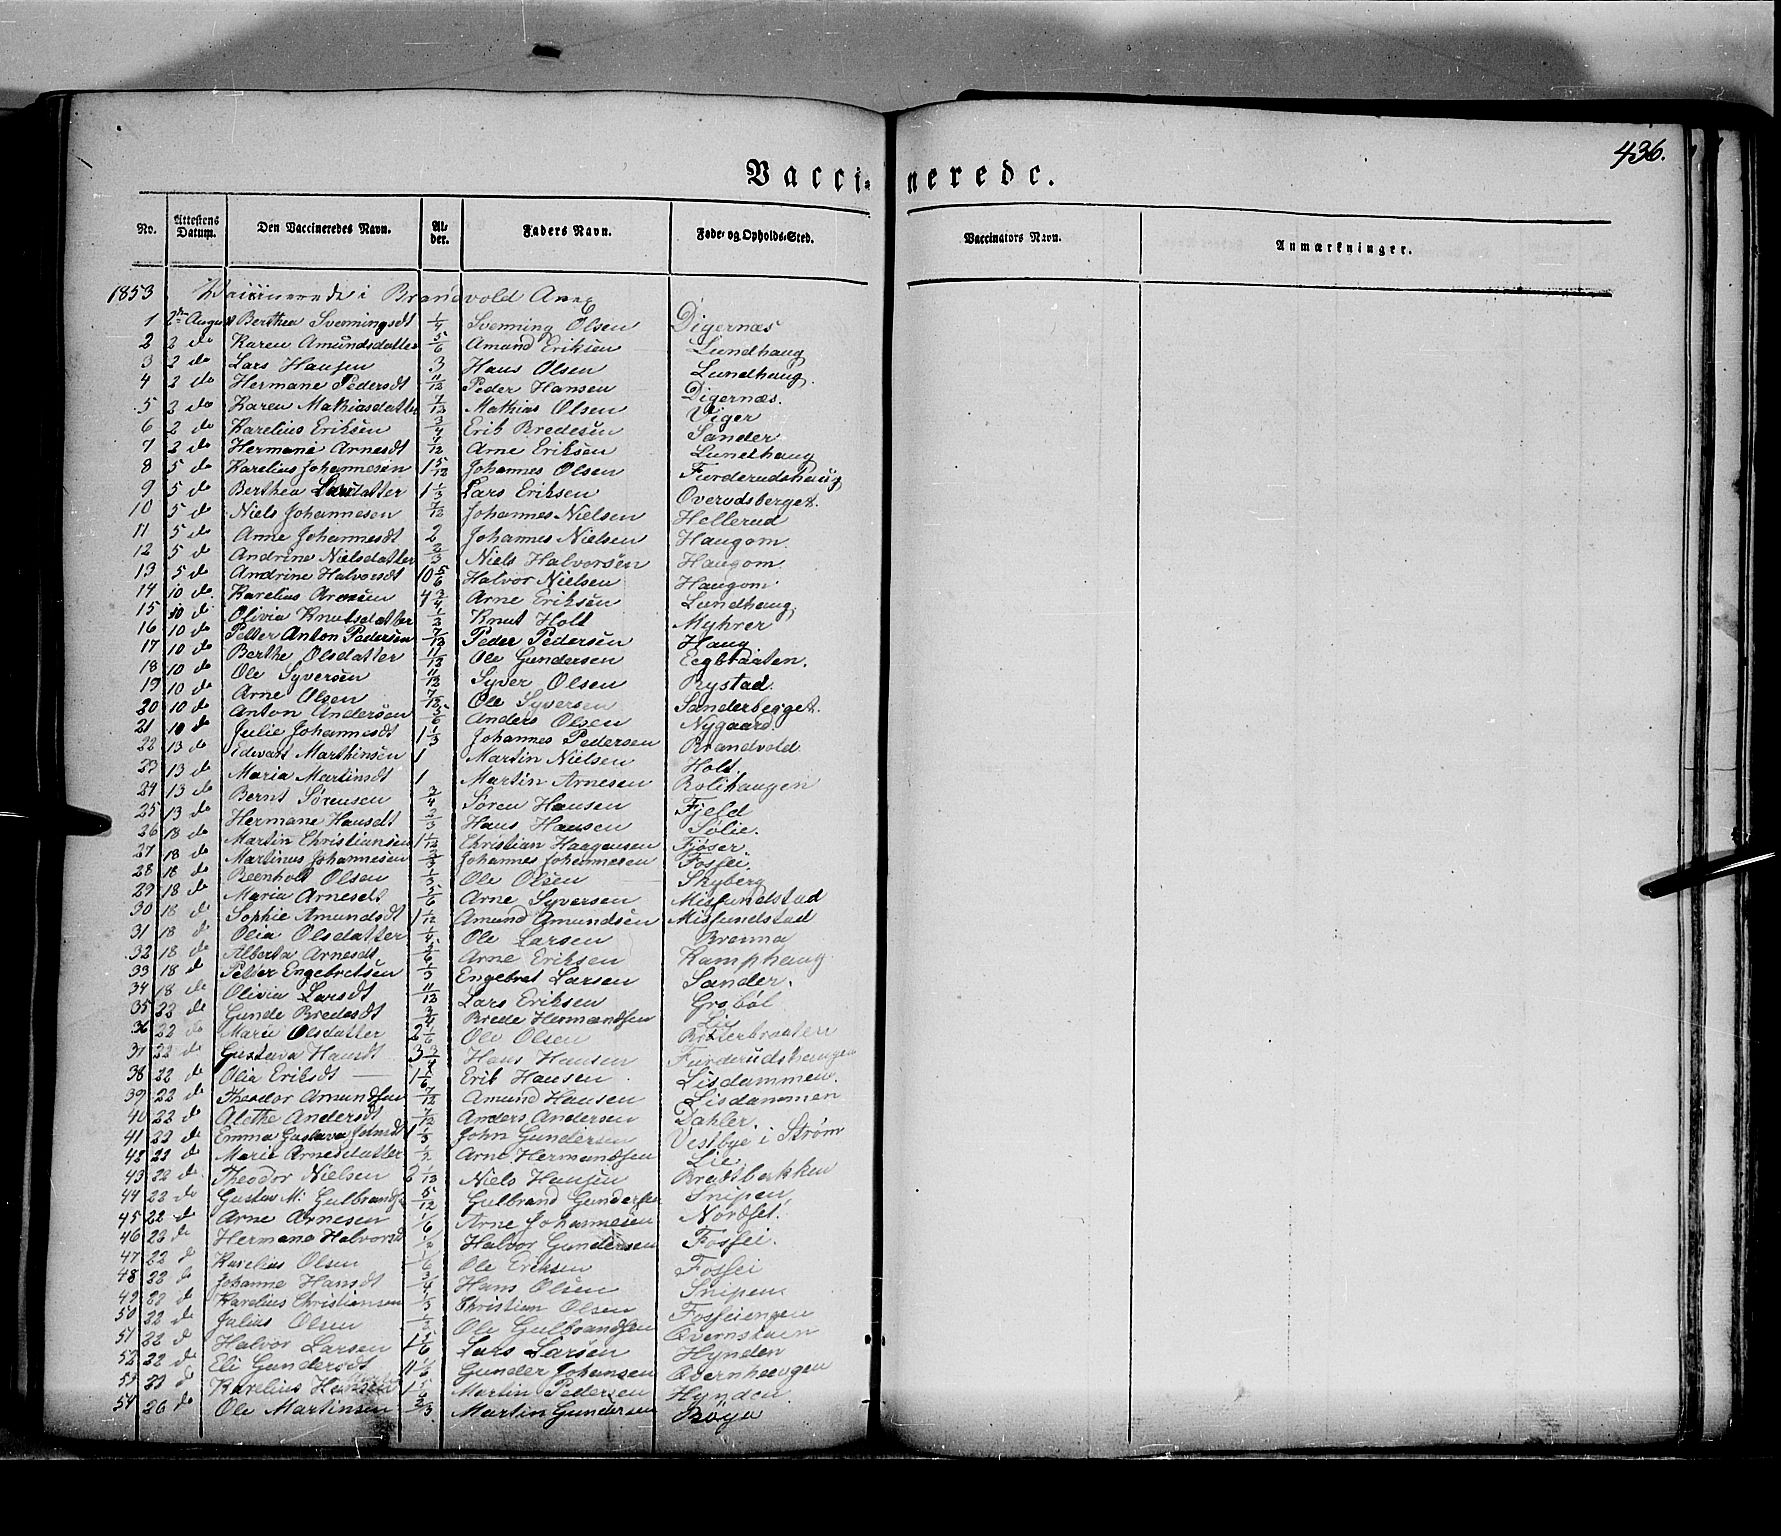 436.
Vacci- nerede.
No. Attestens Datum. Den Vaccineredes Navn. Al- der. Faders Navn. Føde- og Opholds-Sted. Vaccinators Navn. Anmærkninger.
1853 Vaccinerede i Brandvold Anex
1 2den August Berthea Svenningsdt 1/4 Svenning Olsen Digernæs
2 2 do Karen Amundsdatter 5/6 Amund Eriksen Lundhaug
3 2 do Lars Hansen 3 Hans Olsen Lundhaug.
4 2 do Hermane Pedersdt 11/12 Peder Hansen Digernæs.
5 2 do Karen Mathiasdatter 7/12 Mathias Olsen Viger
6 2 do Karelius Eriksen 3/4 Erik Bredesen Sander
7 2 do Hermane Arnesdt Arne Eriksen Lundhaug
8 5 do Karelius Johannesen 1 5/12 Johannes Olsen Furderudshaug
9 5 do Berthea Larsdatter 1 1/3 Lars Eriksen Overudsberget.
10 5 do Niels Johannesen 7/12 Johannes Nielsen Hellerud
11 5 do Anne Johannesdt 2 Johannes Nielsen Haugom
12 5 do Andrine Nielsdatter 2/3 Niels Halvorsen Haugom
13 5 do Andrine Halvorsdt 10 5/6 Halvor Nielsen Haugom
14 10 do Karelius Arnesen 4 3/4 Arne Eriksen Lundhaug
15 10 do Olivia Knutsdatter 1/2 Knut Holt Myhrer
16 10 do Petter Anton Pedersen 7/12 Peder Pedersen Haug
17 10 do Berthe Olsdatter 11/12 Ole Gundersen Eegbraaten.
18 10 do Ole Syversen 11/12 Syver Olsen Rystad.
19 10 do Arne Olsen 7/12 Ole Syversen Sanderbegget.
20 10 do Anton Andersen 5/6 Anders Olsen Nygaard
21 10 do Julie Johannesdt 1 1/3 Johannes Pedersen Brandvold
22 13 do Edevart Marthinsen 1 Martin Nielsen Holt.
23 13 do Maria Martinsdt 1 Martin Arnesen Rolihaugen
24 13 do Bernt Sørensen 3/4 Søren Hansen Fjeld
25 13 do Hermane Hansdt 2/3 Hans Hansen Sølie.
26 18 do Martin Christiansen 1 1/12 Christian Haagensen Fjøser
27 18 do Martinus Johannesen 2/3 Johannes Johannesen Fosfei
28 18 do Beenholt Olsen 1/3 Ole Olsen Skyberg
29 18 do Maria Arnesdt 5/6 Arne Syversen Misfundstad
30 18 do Sophie Amundsdt 1 1/12 Amund Amundsen Misfundstad
31 18 do Olia Olsdatter 1/4 Ole Larsen Brenna
32 18 do Alberta Arnesdt 5/6 Arne Eriksen Kamphaug
33 18 do Petter Engebretsen 1/3 Engebret Larsen Sander.
34 18 do Olivia Larsdt 11/12 Lars Eriksen Grobøl
35 22 do Gunde Bredesdt 3/4 Brede Hermandsen Lie
36 22 do Marie Olsdatter 2 1/6 Ole Olsen
37 22 do Gustava Hansdt 3 3/4 Hans Hansen Furderudshaugen
38 22 do Olia Eriksdt 1 1/6 Erik Hansen Lisdammen.
39 22 do Theodor Amundsen 7/12 Amund Hansen Lisdammen
40 22 do Alethe Andersdt 7/12 Anders Andersen Dahler.
41 22 do Emma Gustava Johnsdt 1 1/3 John Gundersen Vestbye i Strøm
42 22 do Marie Arnesdatter 1/2 Arne Hermandsen Lie
43 22 do Theodor Nielsen 2 1/12 Niels Hansen Bratbakken
44 22 do Gustav M. Gulbrands. 5/12 Gulbrand Gundersen Snipen
45 22 do Arne Arnesen 1/6 Arne Johannesen Nordset.
46 22 do Hermane Halvorsd 1/2 Halvor Gundersen Fosfei.
47 22 do Karelius Olsen 1/6 Ole Eriksen Fosfei
48 22 do Johanne Hansdt 3/4 Hans Olsen Snipen
49 22 do Karelius Christiansen 1/3 Christian Olsen Fosfeiengen
50 22 do Julius Olsen 1/2 Ole Gulbrandsen Overnstuen
51 22 do Halvor Larsen 1 5/6 Lars Larsen Hynden
52 22 do Eli Gundersdt 11 1/2 Gunder Johansen Overnhaugen
53 22 do Karelius 1 5/6 Martin Pedersen Hynden
54 26 do Ole Martinsen 2/3 Martin Gundersen Røya